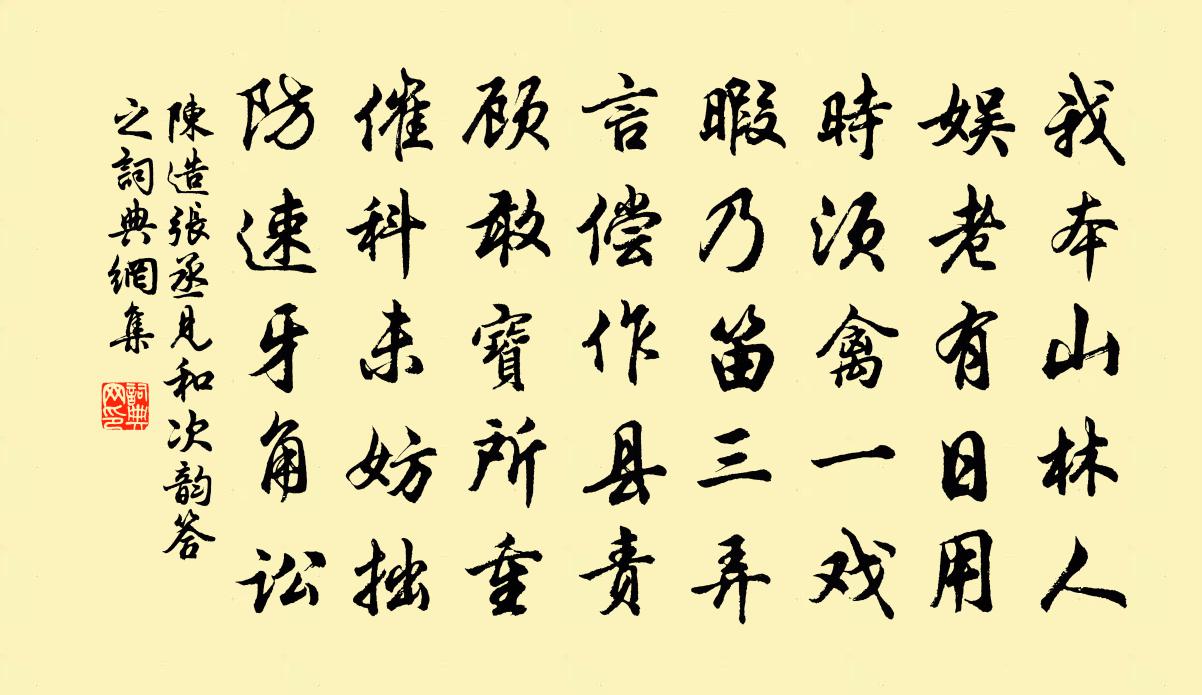 我本山林人
娱老有日用
時须禽一戏
暇乃笛三弄
言偿作县责
顾敢寶所重
催科未妨拙
防速牙角讼
陳造張丞見和次韵答
之詞典網集
詞典
网印